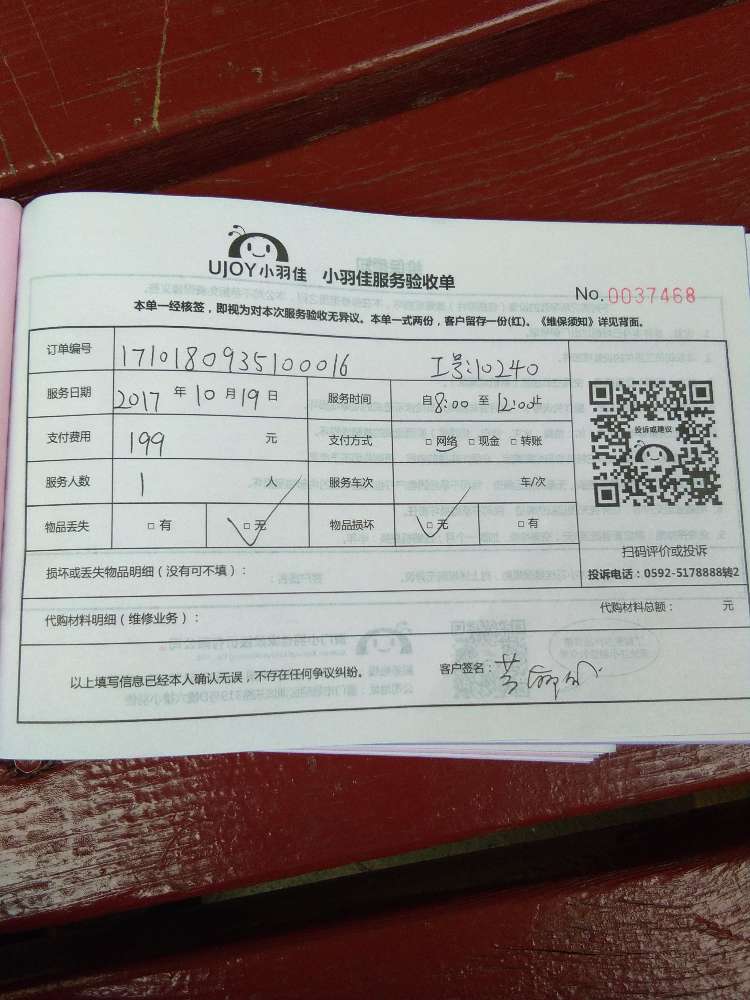 UJOY小羽佳 小羽佳服务验收单
No. 0037468
本单一经核签，即视为对本次服务验收无异议。本单一式两份，客户留存一份(红)。《维保须知》详见背面。
订单编号 1710180935100016 工号:10240
服务日期 2017 年 10 月 19 日 服务时间 自8:00 至 12:00止
支付费用 199 元 支付方式 □网络 □现金 □转账
服务人数 1 服务车次 车/次
物品丢失 □有 □无 物品损坏 □无 □有
投诉或建议
扫码评价或投诉
投诉电话：0592-5178888转2
损坏或丢失物品明细（没有可不填）：
代购材料明细（维修业务）： 代购材料总额： 元
以上填写信息已经本人确认无误，不存在任何争议纠纷。 客户签名：